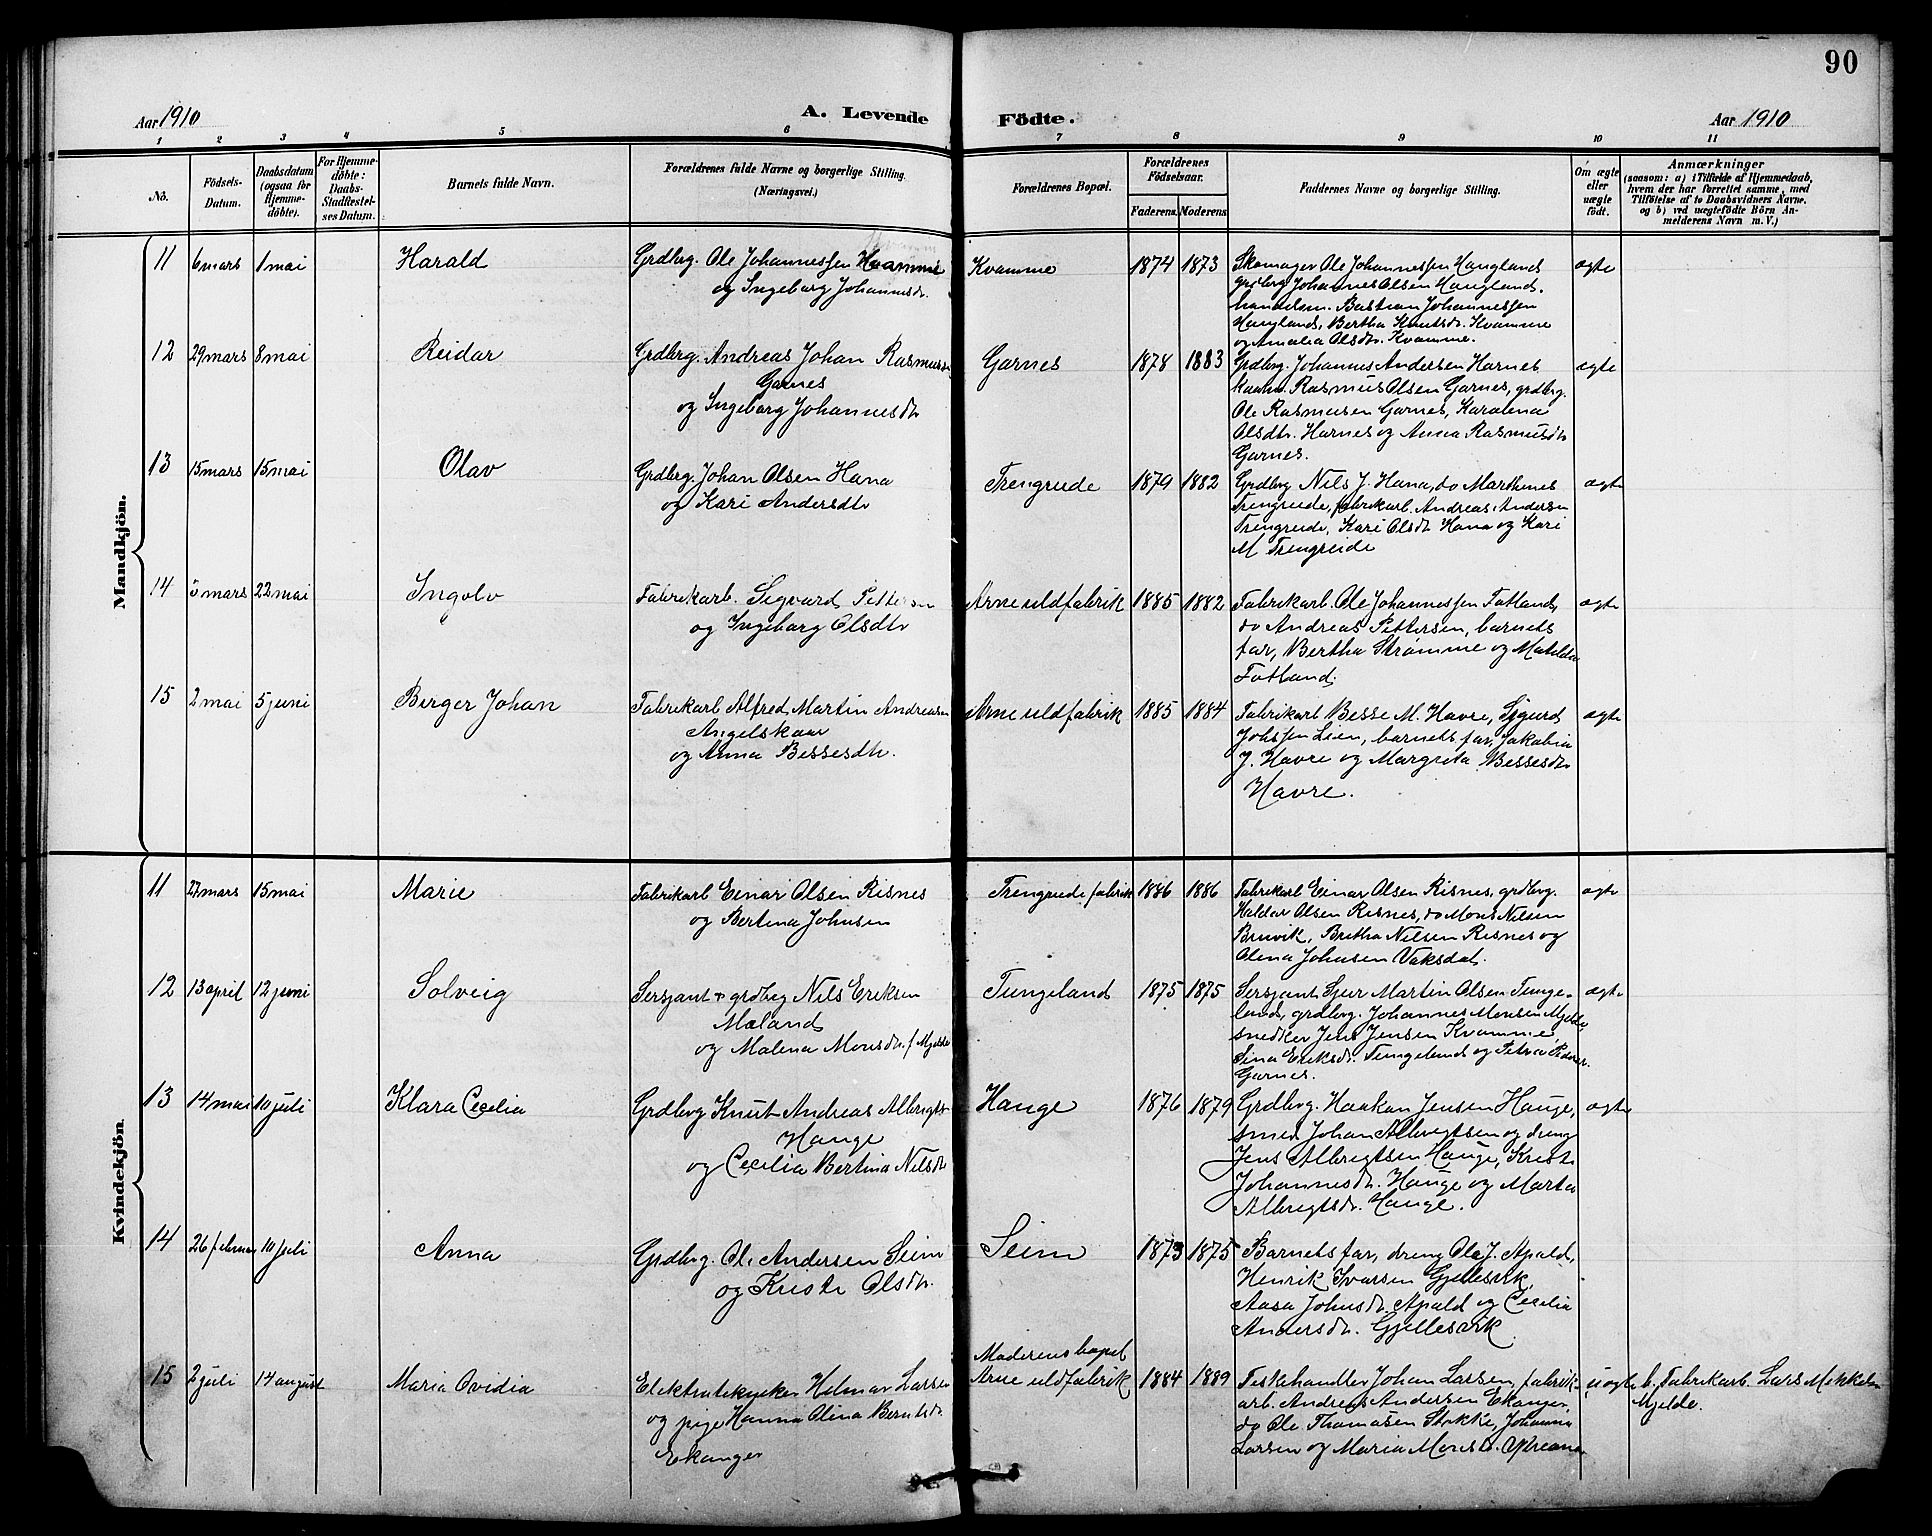 90
Aar 1910
A. Levende Födte.
Aar 1910
1 2 3 4 5 6 7 8 9 10 11
No.
Födsels-
Datum.
Daabsdatum
(ogsaa for
Hjemme-
döbte).
For Hjemme-
döbte:
Daabs-
Stadfæstel-
ses Datum.
Barnets fulde Navn.
Forældrenes fulde Navne og borgerlige Stilling.
(Næringsvei.)
Forældrenes Bopæl.
Forældrenes
Födselsaar.
Faderens. Moderens.
Faddernes Navne og borgerlige Stilling.
Om ægte
eller
uægte
födt.
Anmærkninger
(saasom: a) i Tilfælde af Hjemmedaab,
hvem der har forrettet samme, med
Tilföielse af to Daabsvidners Navne,
og b) ved uægtefödte Börn An-
melderens Navn m. V.)
Mandkjön.
11 6 mars 1 mai Harald
Grdbrg. Ole Johannessen Kvamme
og Ingeborg Johannesdr.
Kvamme 1874 1873
Skomager Ole Johannessen Haugland
grdbrg Johannes Olsen Haugland.
handelsm. Bastian Johannessen
Haugland, Bertha Knutsdr. Kvamme
og Amalia Olsdtr. Kvamme.
ægte
12 29 mars 8 mai Reidar
Grdbrg. Andreas Johan Rasmussen
Garnes
og Ingeborg Johannesdr
Garnes 1878 1883
Grdbrg. Johannes Andersen Harnes
kaarm. Rasmus Olsen Garnes, grdbrg.
Ole Rasmusen Garnes, Karolena
Olsdtr. Harnes og Anna Rasmusdr
Garnes.
ægte
13 15 mars 15 mai Olav
Grdbrg. Johan Olsen Hana
og Kari Andersdtr
Trengreide 1879 1882
Grdbrg Nils J. Hana, do Marthenes
Trengreide, fabrikarb. Andreas Andersen
Trengreide, Kari Olsdr Hana og Kari
M. Trengreide
ægte
14 5 mars 22 mai Ingolv
Fabrikarb. Sigvard Pettersen
og Ingeborg Olsdtr
Arne uldfabrik 1885 1882
Fabrikarb. Ole Johannessen Totland,
do Andreas Pettersen, barnets
far, Bertha Strømme og Matilda
Totland.
ægte
15 2 mai 5 juni Berger Johan
Fabrikarb Alfred Martin Andreasen
Angelskaar
og Anna Bessesdtr.
Arne uldfabrik 1885 1884
Fabrikarb Besse M. Havre, Sigurd
Johssen Lien, barnets far, Jakobia
J. Havre og Margreta Bessesdtr
Havre.
ægte
Kvindekjön.
11 27 mars 15 mai Marie
Fabrikarb Einar Olsen Risnes
og Bertina Johnsen
Trengreide fabrik 1886 1886
Fabrikarb Einar Olsen Risnes, grdbrg.
Haldor Olsen Risnes, do Mons Nilsen
Bruvik, Britha Nilsen Risnes og
Olena Johnsen Vaksdal.
ægte
12 13 april 12 juni Solveig
Sersjant + grdbrg Nils Eriksen
Mæland
og Malena Monsdr. f Mjelde
Tungeland 1875 1875
Sersjant Sjur Martin Olsen Tunge-
land, grdbrg. Johannes Monsen Mjelde
snedker Jens Jensen Kvamme
Sina Eriksdr. Tungeland og Petra Peders.
Garnes.
ægte
13 14 mai 10 juli Klara Cecilia
Grdbrg Knut Andreas Albrigts.
Hauge
og Cecilia Bertina Nilsdr
Hauge 1876 1879
Grdbrg. Haakon Jensen Hauge,
smed Johan Albrigtsen og dreng
Jens Albrigtsen Hauge, Kristi
Johannesdr. Hauge og Marta
Albrigtsdr. Hauge.
ægte
14 26 februar 10 juli Anna
Grdbrg. Ole Andersen Seim
og Kristi Olsdtr.
Seim 1873 1875
Barnets far, dreng Ole J. Apald,
Henrik Ivarsen Gjellesvik,
Aasa Johnsdr. Apald og Cecilia
Andersdr. Gjellesvik.
15 2 juli 14 august Maria Ovidia
Elektrotekniker Helmar Larsen
og pige Hanna Olina Berntsdr.
Ekanger
Moderens bopæl
Arne uldfabrik 1884 1889
Fiskehandler Johan Larsen, fabrik-
arb. Andreas Andersen Ekanger,
do Ole Thomasen Stokke, Johanna
Larsen og Maria Monsdr.
uægte
b. Fabrikarb. Lars Mikkelsen
Mjelde.